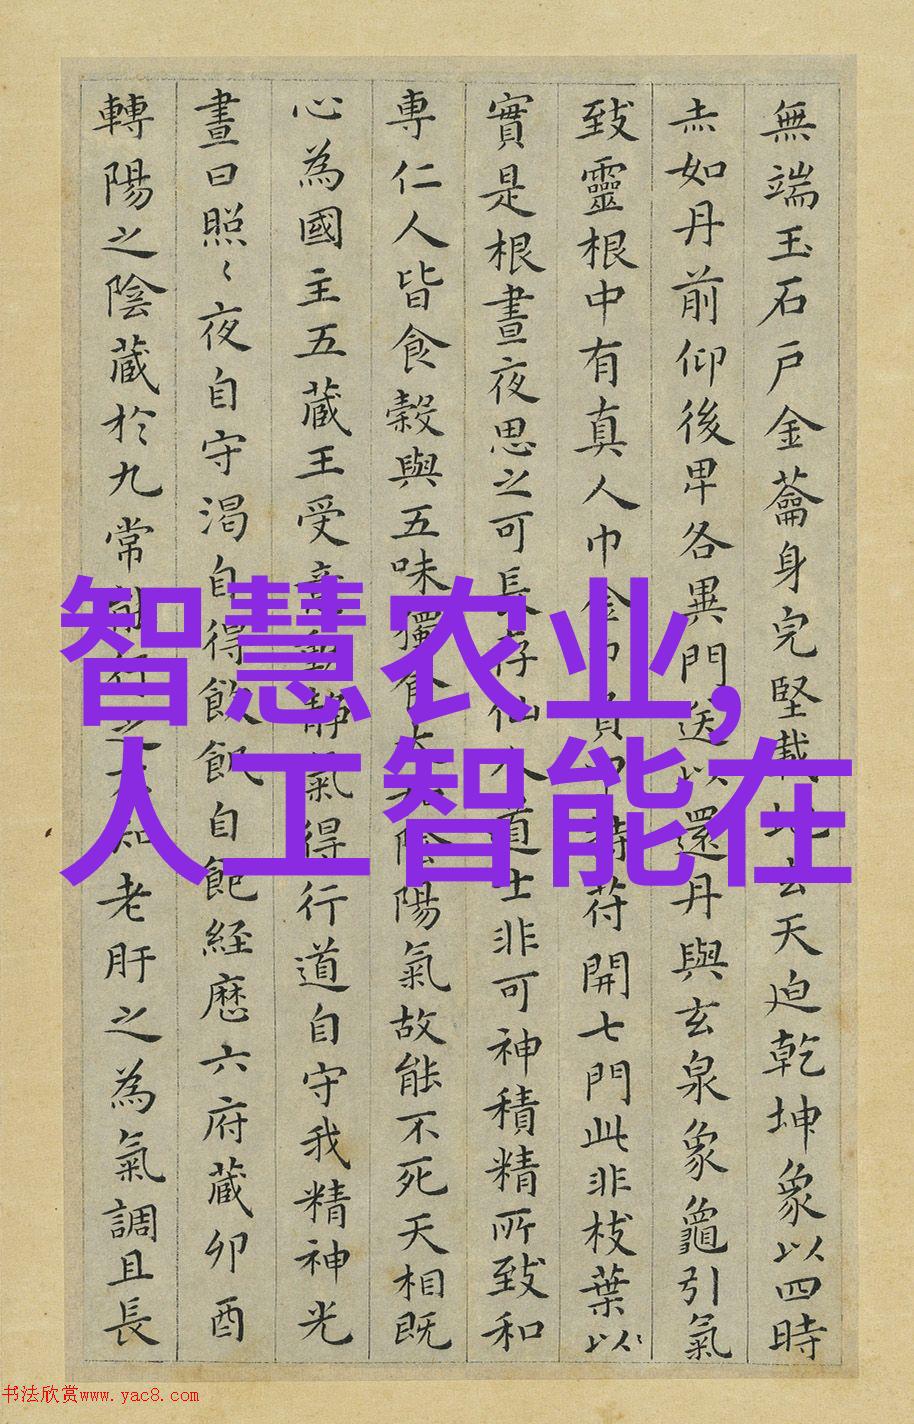 無端玉石戶金蘥身完堅載地玄天迫乾坤象以四時
赤如丹前仰後卑各異門送以還丹與玄泉象龜引氣
致靈根中有真人巾金巾負甲持符開七門此非枝葉以
實是根晝夜思之可長存仙人道士非可神積精所致和
專仁人皆食穀與五味獨食太和陰陽氣故能不死天相既
心為國主五藏王受意動靜氣得行道自守我精神光
晝日照〻夜自守渴自得飲飢自飽経歷六府藏卯酉
轉陽之陰藏於九常能行之不知老肝之為氣調且長
智慧农业,
人工智能在
书法欣赏www.yac8.com